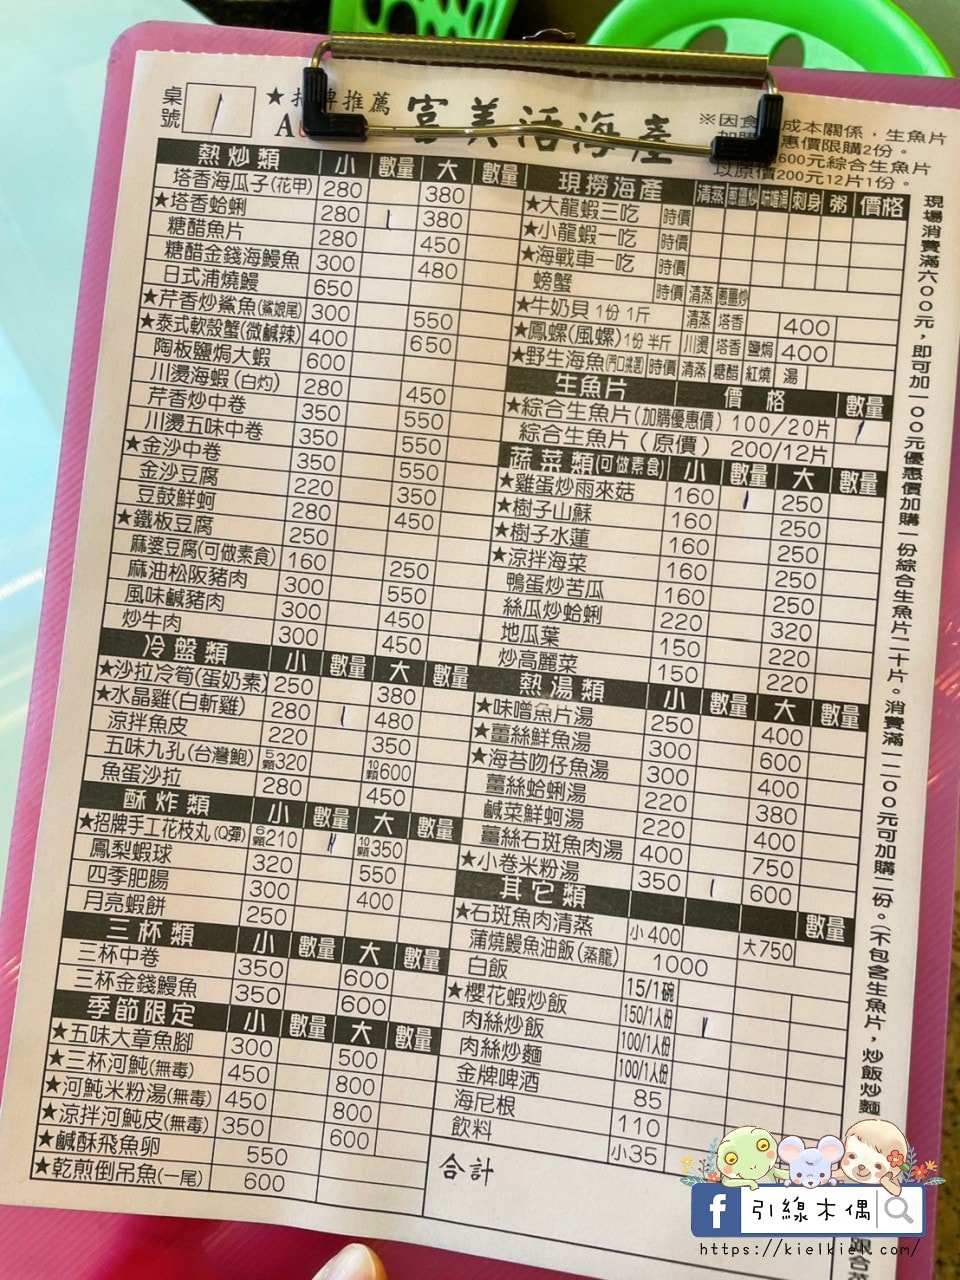 桌號
★招牌推薦
富美活海產
※因食 成本關係，生魚片
惠價限購2份。
600元綜合生魚片
以原價200元12片1份。
熱炒類 小 數量 大 數量
塔香海瓜子(花甲) 280 380
★塔香蛤蜊 280 380
糖醋魚片 280 450
糖醋金錢海鰻魚 300 480
日式浦燒鰻 650
★芹香炒鯊魚(鯊娘尾) 300 550
★泰式軟殼蟹(微鹹辣) 400 650
陶板鹽焗大蝦 600
川燙海蝦(白灼) 280 450
芹香炒中卷 350 550
川燙五味中卷 350 550
★金沙中卷 350 550
金沙豆腐 220 350
豆鼓鮮蚵 280 450
★鐵板豆腐 250
麻婆豆腐(可做素食) 160 250
麻油松阪豬肉 300 550
風味鹹豬肉 300 450
炒牛肉 300 450
冷盤類 小 數量 大 數量
★沙拉冷筍(蛋奶素) 250 380
★水晶雞(白斬雞) 280 480
涼拌魚皮 220 350
五味九孔(台灣鮑) 5顆320 10顆600
魚蛋沙拉 280 450
酥炸類 小 數量 大 數量
★招牌手工花枝丸(Q彈) 6顆210 10顆350
鳳梨蝦球 320 550
四季肥腸 300 400
月亮蝦餅 250
三杯類 小 數量 大 數量
三杯中卷 350 600
三杯金錢鰻魚 350 600
季節限定 小 數量 大 數量
★五味大章魚腳 300 500
★三杯河魨(無毒) 450 800
★河魨米粉湯(無毒) 450 800
★涼拌河魨皮(無毒) 350 600
★鹹酥飛魚卵 550
★乾煎倒吊魚(一尾) 600
現撈海產 清蒸 蔥薑炒 味噌湯 刺身 粥 價格
★大龍蝦三吃 時價
★小龍蝦一吃 時價
★海戰車一吃 時價
螃蟹 時價 清蒸 蔥薑炒
★牛奶貝1份1斤 清蒸 塔香 400
★鳳螺(風螺)1份半斤 川燙 塔香 鹽焗 400
★野生海魚(門口挑選) 時價 清蒸 糖醋 紅燒 湯
生魚片 價格 數量
★綜合生魚片(加購優惠價) 100/20片
綜合生魚片(原價) 200/12片
蔬菜類(可做素食) 小 數量 大 數量
★雞蛋炒雨來菇 160 250
★樹子山蘇 160 250
★樹子水蓮 160 250
★涼拌海菜 160 250
鴨蛋炒苦瓜 160 250
絲瓜炒蛤蜊 220 320
地瓜葉 150 220
炒高麗菜 150 220
熱湯類 小 數量 大 數量
★味噌魚片湯 250 400
★薑絲鮮魚湯 300 600
★海苔吻仔魚湯 300 400
薑絲蛤蜊湯 220 380
鹹菜鮮蚵湯 220 400
薑絲石斑魚肉湯 400 750
★小卷米粉湯 350 600
其它類 數量
★石斑魚肉清蒸 小400 大750
蒲燒鰻魚油飯(蒸籠) 1000
白飯 15/1碗
★櫻花蝦炒飯 150/1人份
肉絲炒飯 100/1人份
肉絲炒麵 100/1人份
金牌啤酒 85
海尼根 110
飲料 小35
合計
現場消費滿六００元，即可加一００元優惠價加購一份綜合生魚片二十片。消費滿一二００元可加購二份。(不包含生魚片，炒飯炒麵
引線木偶
https://kielkiel.com/